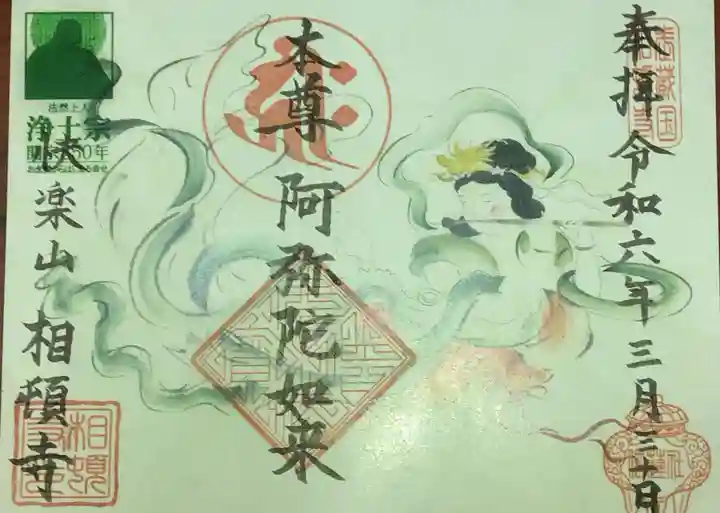 奉拝 令和六年三月三十日
武蔵国
本尊 阿弥陀如来
法然上人
浄土宗
開宗850年
快楽山 相頓寺
相頓